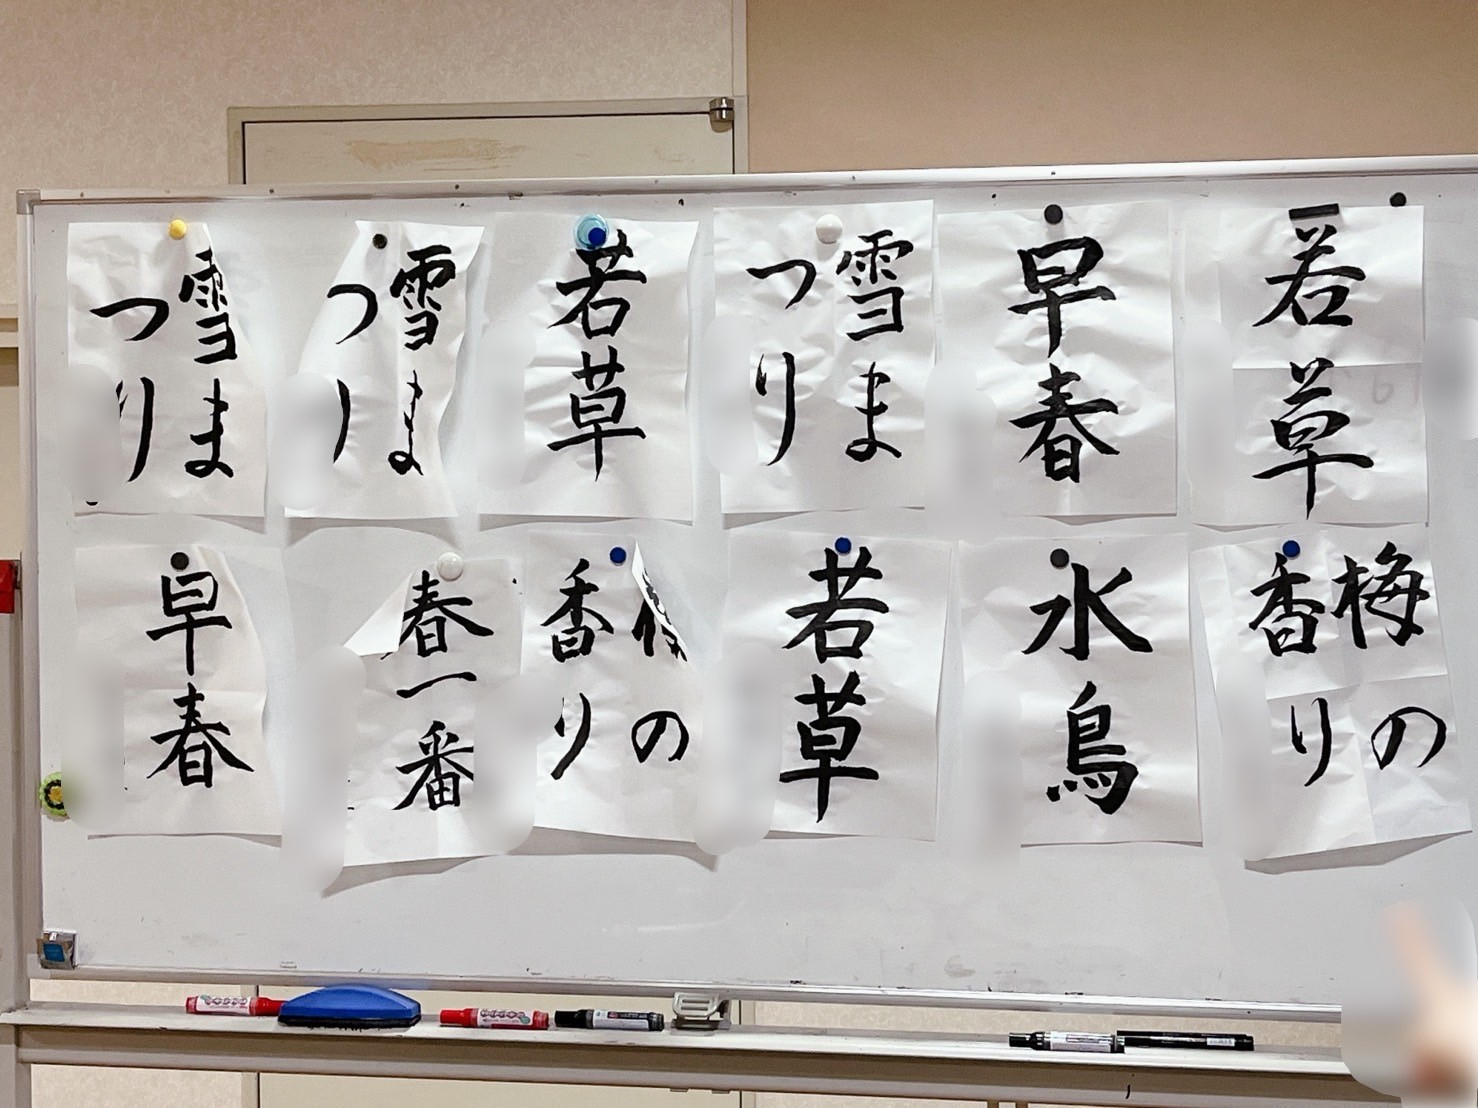 雪ま
つり
雪ま
つり
若草
雪ま
つり
早春
若草
早春
春一番
の
香り
若草
水鳥
梅の
香り